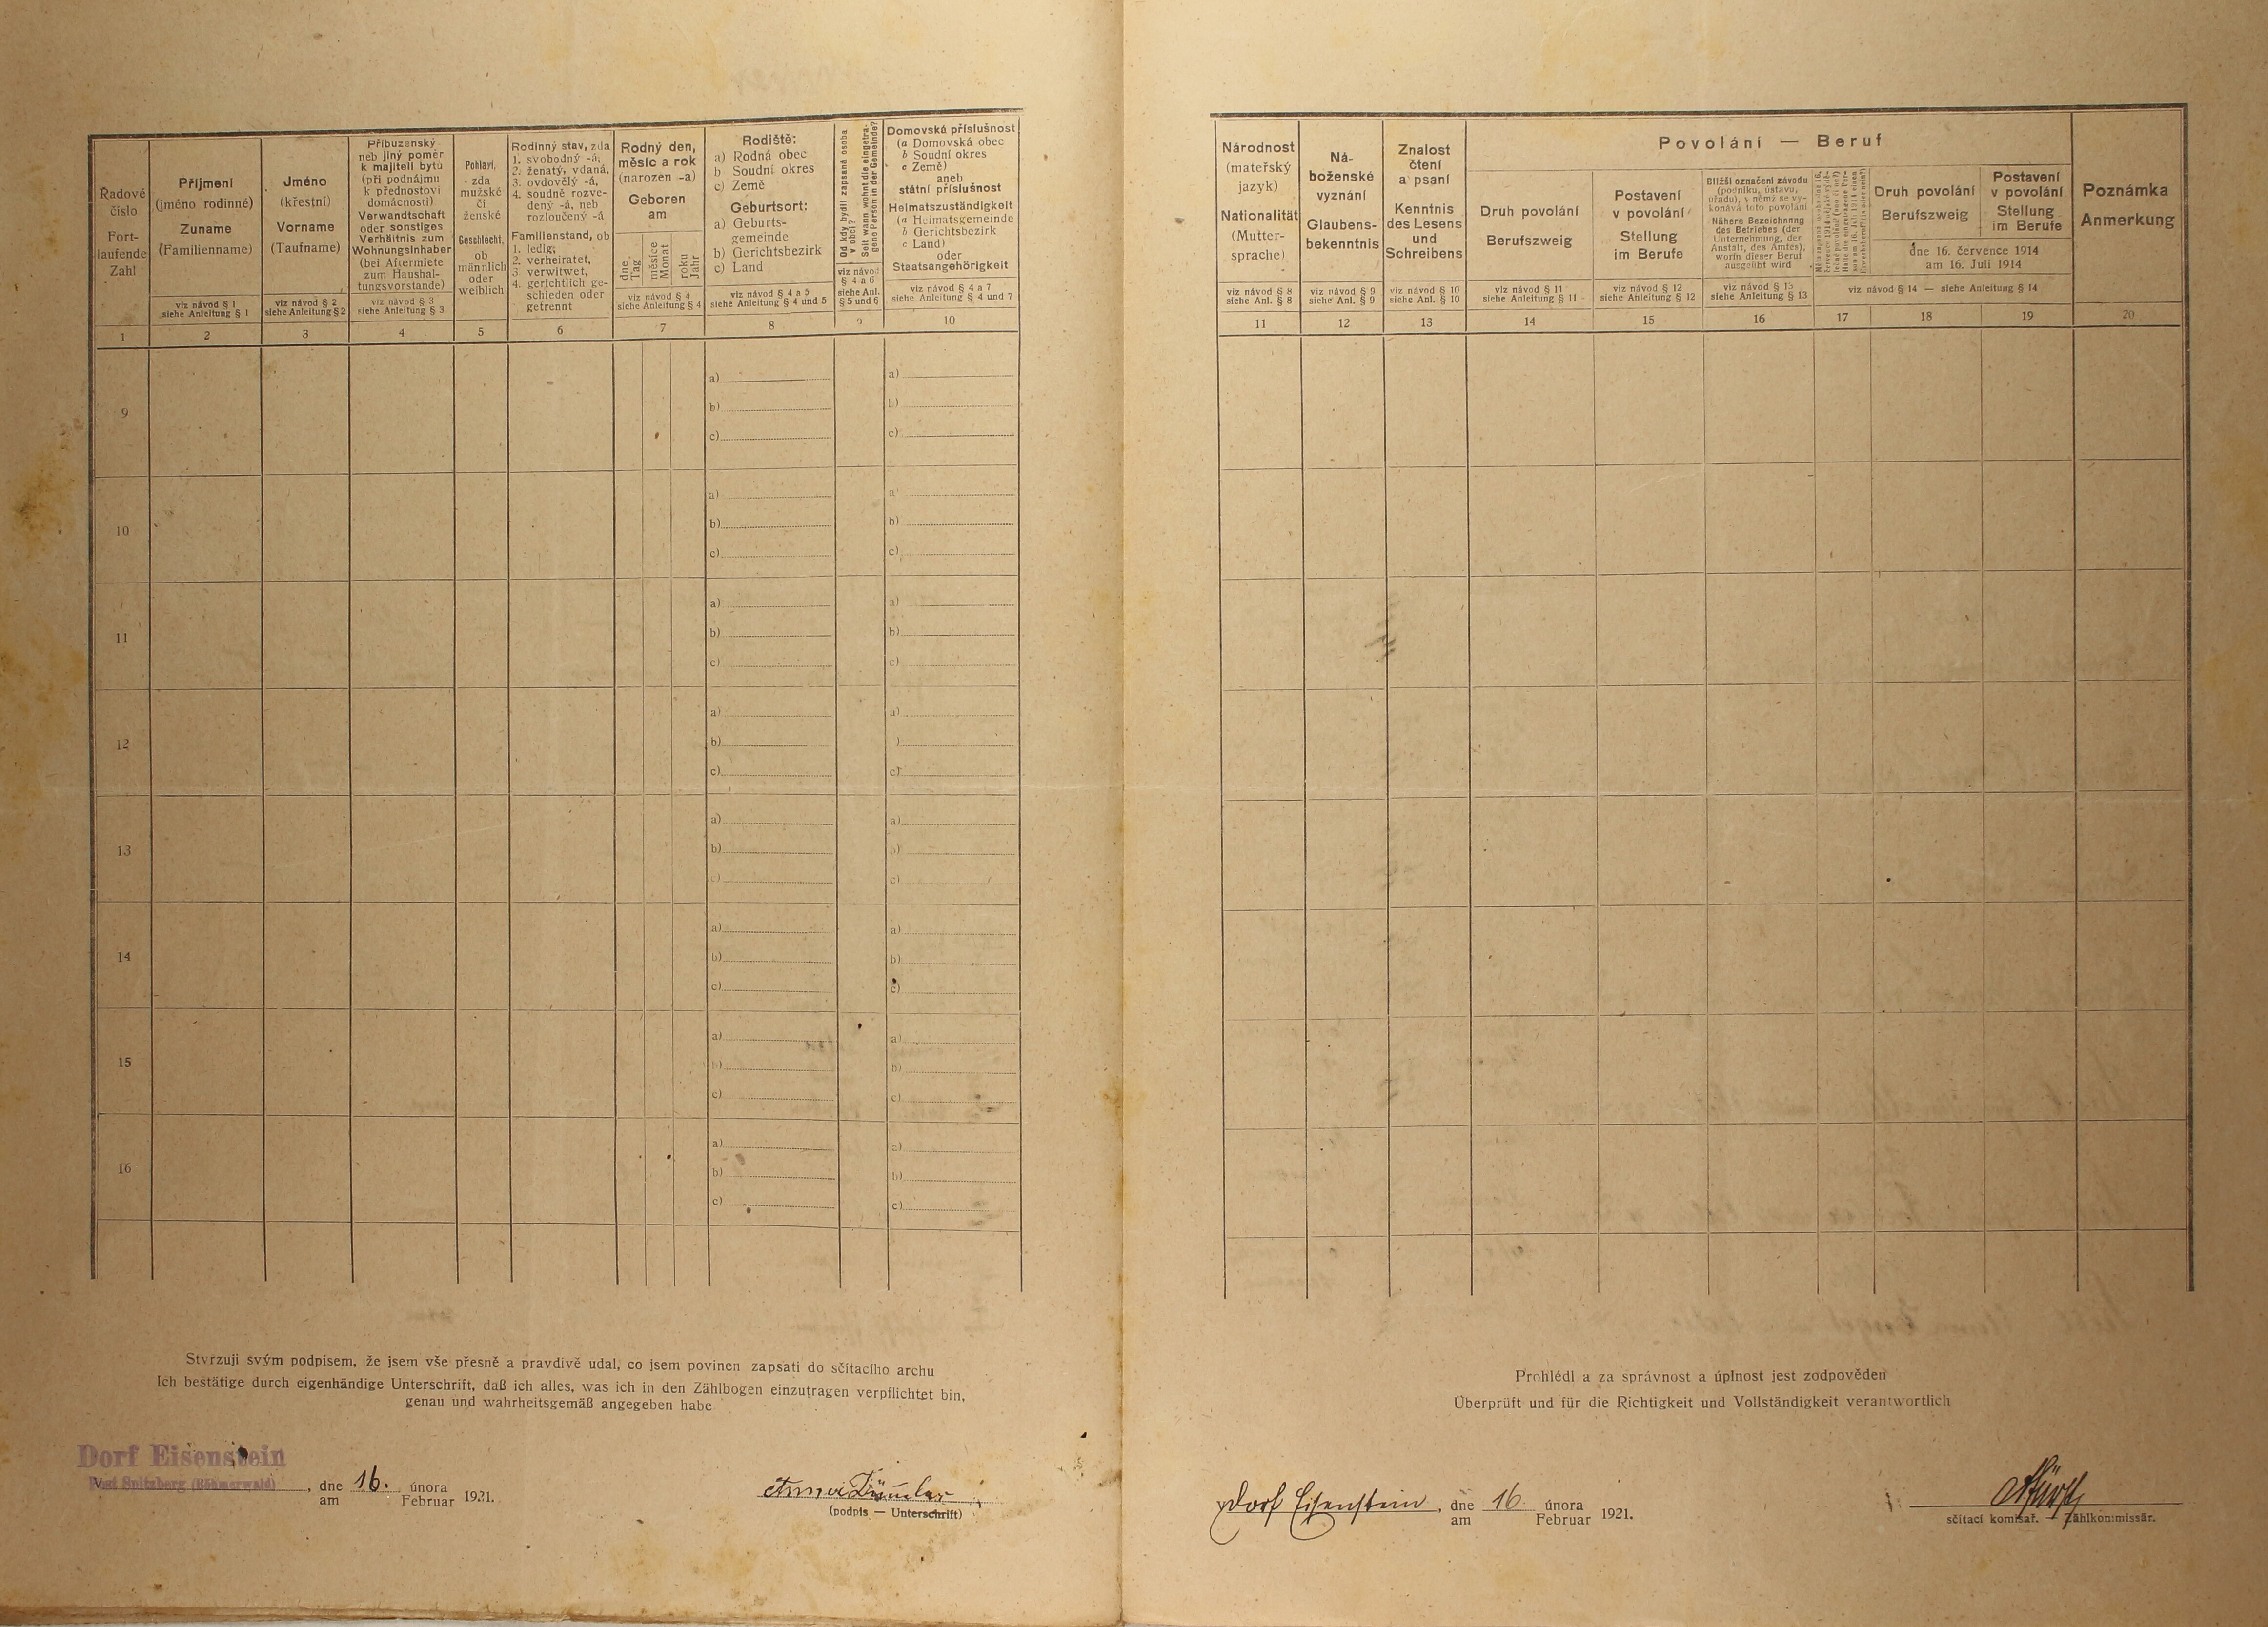 Řadové
číslo
Fort-
laufende
Zahl
1
Příjmení
(jméno rodinné)
Zuname
(Familienname)
viz návod § 1
siehe Anleitung § 1
2
Jméno
(křestní)
Vorname
(Taufname)
viz návod § 2
siehe Anleitung § 2
3
Příbuzenský
neb jiný poměr
k majiteli bytu
(při podnájmu
k přednostovi
domácnosti)
Verwandtschaft
oder sonstiges
Verhältnis zum
Wohnungsinhaber
(bei Aftermiete
zum Haushal-
tungsvorstande)
viz návod § 3
siehe Anleitung § 3
4
Pohlaví,
zda
mužské
či
ženské
Geschlecht,
ob
männlich
oder
weiblich
5
Rodinný stav, zda
1. svobodný -á,
2. ženatý, vdaná,
3. ovdovělý -á,
4. soudně rozve-
dený -á, neb
rozloučený -á
Familienstand, ob
1. ledig,
2. verheiratet,
3. verwitwet,
4. gerichtlich ge-
schieden oder
getrennt
6
Rodný den,
měsíc a rok
(narozen -a)
Geboren
am
dne
Tag
měsíce
Monat
roku
Jahr
viz návod § 4
siehe Anleitung § 4
7
Rodiště:
a) Rodná obec
b Soudní okres
c) Země
Geburtsort:
a) Geburts-
gemeinde
b) Gerichtsbezirk
c) Land
viz návod § 4 a 5
siehe Anleitung § 4 und 5
8
Od kdy bydlí zapsaná osoba
v obci?
Seit wann wohnt die eingetra-
gene Person in der Gemeinde?
viz návod
§ 4 a 6
siehe Anl.
§ 5 und 6
9
Domovská příslušnost
(a Domovská obec
b Soudní okres
c Země)
aneb
státní příslušnost
Heimatszuständigkeit
(a Heimatsgemeinde
b Gerichtsbezirk
c Land)
oder
Staatsangehörigkeit
viz návod § 4 a 7
siehe Anleitung § 4 und 7
10
9
a) a)
b) b)
c) c)
10
a) a)
b) b)
c) c)
11
a) a)
b) b)
c) c)
12
a) a)
b) )
c) c)
13
a) a)
b) b)
c) c)
14
a) a)
b) b)
c) c)
15
a) a)
b) b)
c) c)
16
a) a)
b) b)
c) c)
Stvrzuji svým podpisem, že jsem vše přesně a pravdivě udal, co jsem povinen zapsati do sčítacího archu
Ich bestätige durch eigenhändige Unterschrift, daß ich alles, was ich in den Zählbogen einzutragen verpflichtet bin,
genau und wahrheitsgemäß angegeben habe
Dorf Eisenstein
Post Spitzberg (Böhmerwald)
V , dne 16. února 1921.
am Februar
(podpis — Unterschrift)
Národnost
(mateřský
jazyk)
Nationalität
(Mutter-
sprache)
viz návod § 8
siehe Anl. § 8
11
Ná-
boženské
vyznání
Glaubens-
bekenntnis
viz návod § 9
siehe Anl. § 9
12
Znalost
čtení
a psaní
Kenntnis
des Lesens
und
Schreibens
viz návod § 10
siehe Anl. § 10
13
Povolání — Beruf
Druh povolání
Berufszweig
viz návod § 11
siehe Anleitung § 11
14
Postavení
v povolání
Stellung
im Berufe
viz návod § 12
siehe Anleitung § 12
15
Bližší označení závodu
(podniku, ústavu,
úřadu), v němž se vy-
konává toto povolání
Nähere Bezeichnung
des Betriebes (der
Unternehmung, der
Anstalt, des Amtes),
worin dieser Beruf
ausgeübt wird
viz návod § 13
siehe Anleitung § 13
16
17
Druh povolání
Berufszweig
Postavení
v povolání
Stellung
im Berufe
dne 16. července 1914
am 16. Juli 1914
viz návod § 14 — siehe Anleitung § 14
18
19
Poznámka
Anmerkung
20
Prohlédl a za správnost a úplnost jest zodpověden
Überprüft und für die Richtigkeit und Vollständigkeit verantwortlich
Dorf Eisenstein, dne 16. února 1921.
am Februar
sčítací komisař. — Zählkommissär.